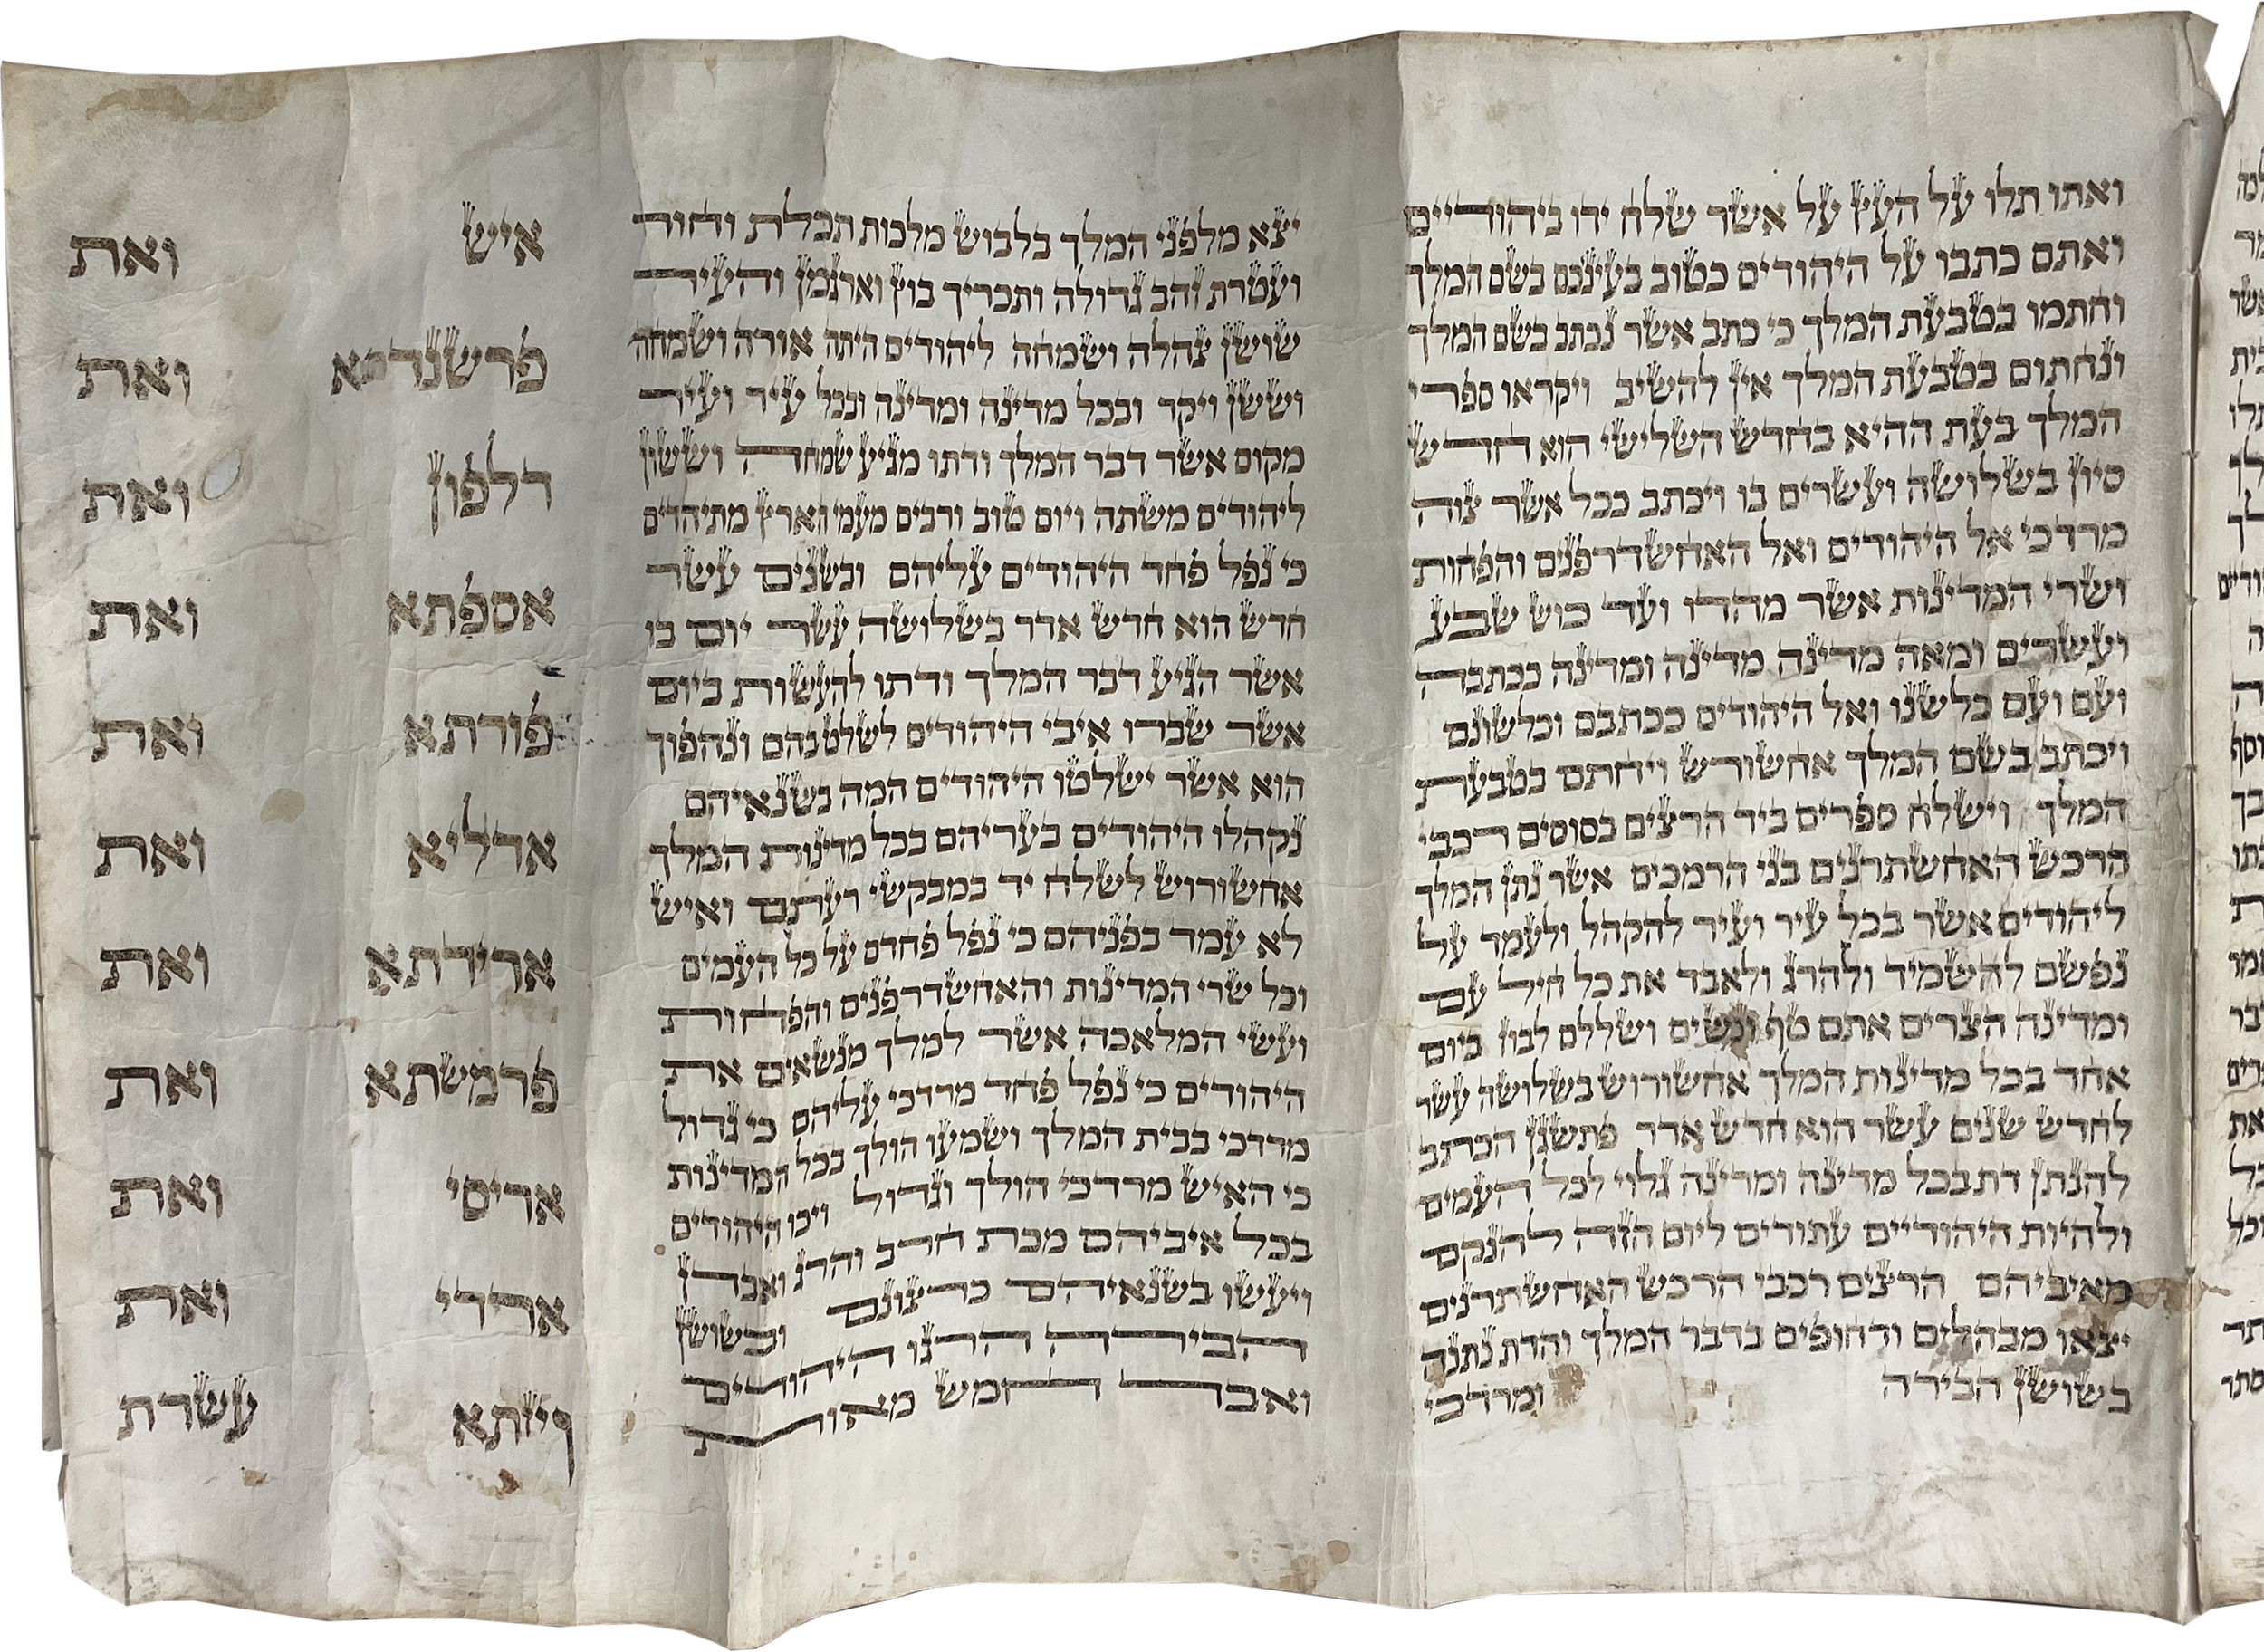 ואתו תלו על העץ על אשר שלח ידו ביהודיים
ואתם כתבו על היהודים כטוב בעיניכם בשם המלך
וחתמו בטבעת המלך כי כתב אשר נכתב בשם המלך
ונחתום בטבעת המלך אין להשיב ויקראו ספרי
המלך בעת ההיא בחדש השלישי הוא חדש
סיון בשלושה ועשרים בו ויכתב ככל אשר צוה
מרדכי אל היהודים ואל האחשדרפנים והפחות
ושרי המדינות אשר מהדו ועד כוש שבע
ועשרים ומאה מדינה מדינה ומדינה ככתבה
ועם ועם כלשנו ואל היהודים ככתבם וכלשונם
ויכתב בשם המלך אחשורש ויחתם בטבעת
המלך וישלח ספרים ביד הרצים בסוסים רכבי
הרכש האחשתרנים בני הרמכים אשר נתן המלך
ליהודים אשר בכל עיר ועיר להקהל ולעמד על
נפשם להשמיד ולהרג ולאבד את כל חיל עם
ומדינה הצרים אתם טף ונשים ושללם לבוז ביום
אחד בכל מדינות המלך אחשורוש בשלושה עשר
לחדש שנים עשר הוא חדש אדר פתשגן הכתב
להנתן דת בכל מדינה ומדינה גלוי לכל העמים
ולהיות היהודיים עתודים ליום הזה להנקם
מאיביהם הרצים רכבי הרכש האחשתרנים
יצאו מבהלים ודחופים בדבר המלך והדת נתנה
בשושן הבירה ומרדכי
יצא מלפני המלך בלבוש מלכות תכלת וחור
ועטרת זהב גדולה ותכריך בוץ וארגמן והעיר
שושן צהלה ושמחה ליהודים היתה אורה ושמחה
וששן ויקר ובכל מדינה ומדינה ובכל עיר ועיר
מקום אשר דבר המלך ודתו מגיע שמחה וששון
ליהודים משתה ויום טוב ורבים מעמי הארץ מתיהדים
כי נפל פחד היהודים עליהם ובשנים עשר
חדש הוא חדש אדר בשלושה עשר יום בו
אשר הגיע דבר המלך ודתו להעשות ביום
אשר שברו איבי היהודים לשלוט בהם ונהפוך
הוא אשר ישלטו היהודים המה בשנאיהם
נקהלו היהודים בעריהם בכל מדינות המלך
אחשורוש לשלח יד במבקשי רעתם ואיש
לא עמד בפניהם כי נפל פחדם על כל העמים
וכל שרי המדינות והאחשדרפנים והפחות
ועשי המלאכה אשר למלך מנשאים את
היהודים כי נפל פחד מרדכי עליהם כי גדול
מרדכי בבית המלך ושמעו הולך בכל המדינות
כי האיש מרדכי הולך וגדול ויכו היהודים
בכל איביהם מכת חרב והרג ואבדן
ויעשו בשנאיהם כרצונם ובשושן
הבירה הרגו היהודים
ואבד חמש מאות
איש ואת
פרשנדתא ואת
דלפון ואת
אספתא ואת
פורתא ואת
אדליא ואת
ארידתא ואת
פרמשתא ואת
אריסי ואת
ארדי ואת
ויזתא עשרת